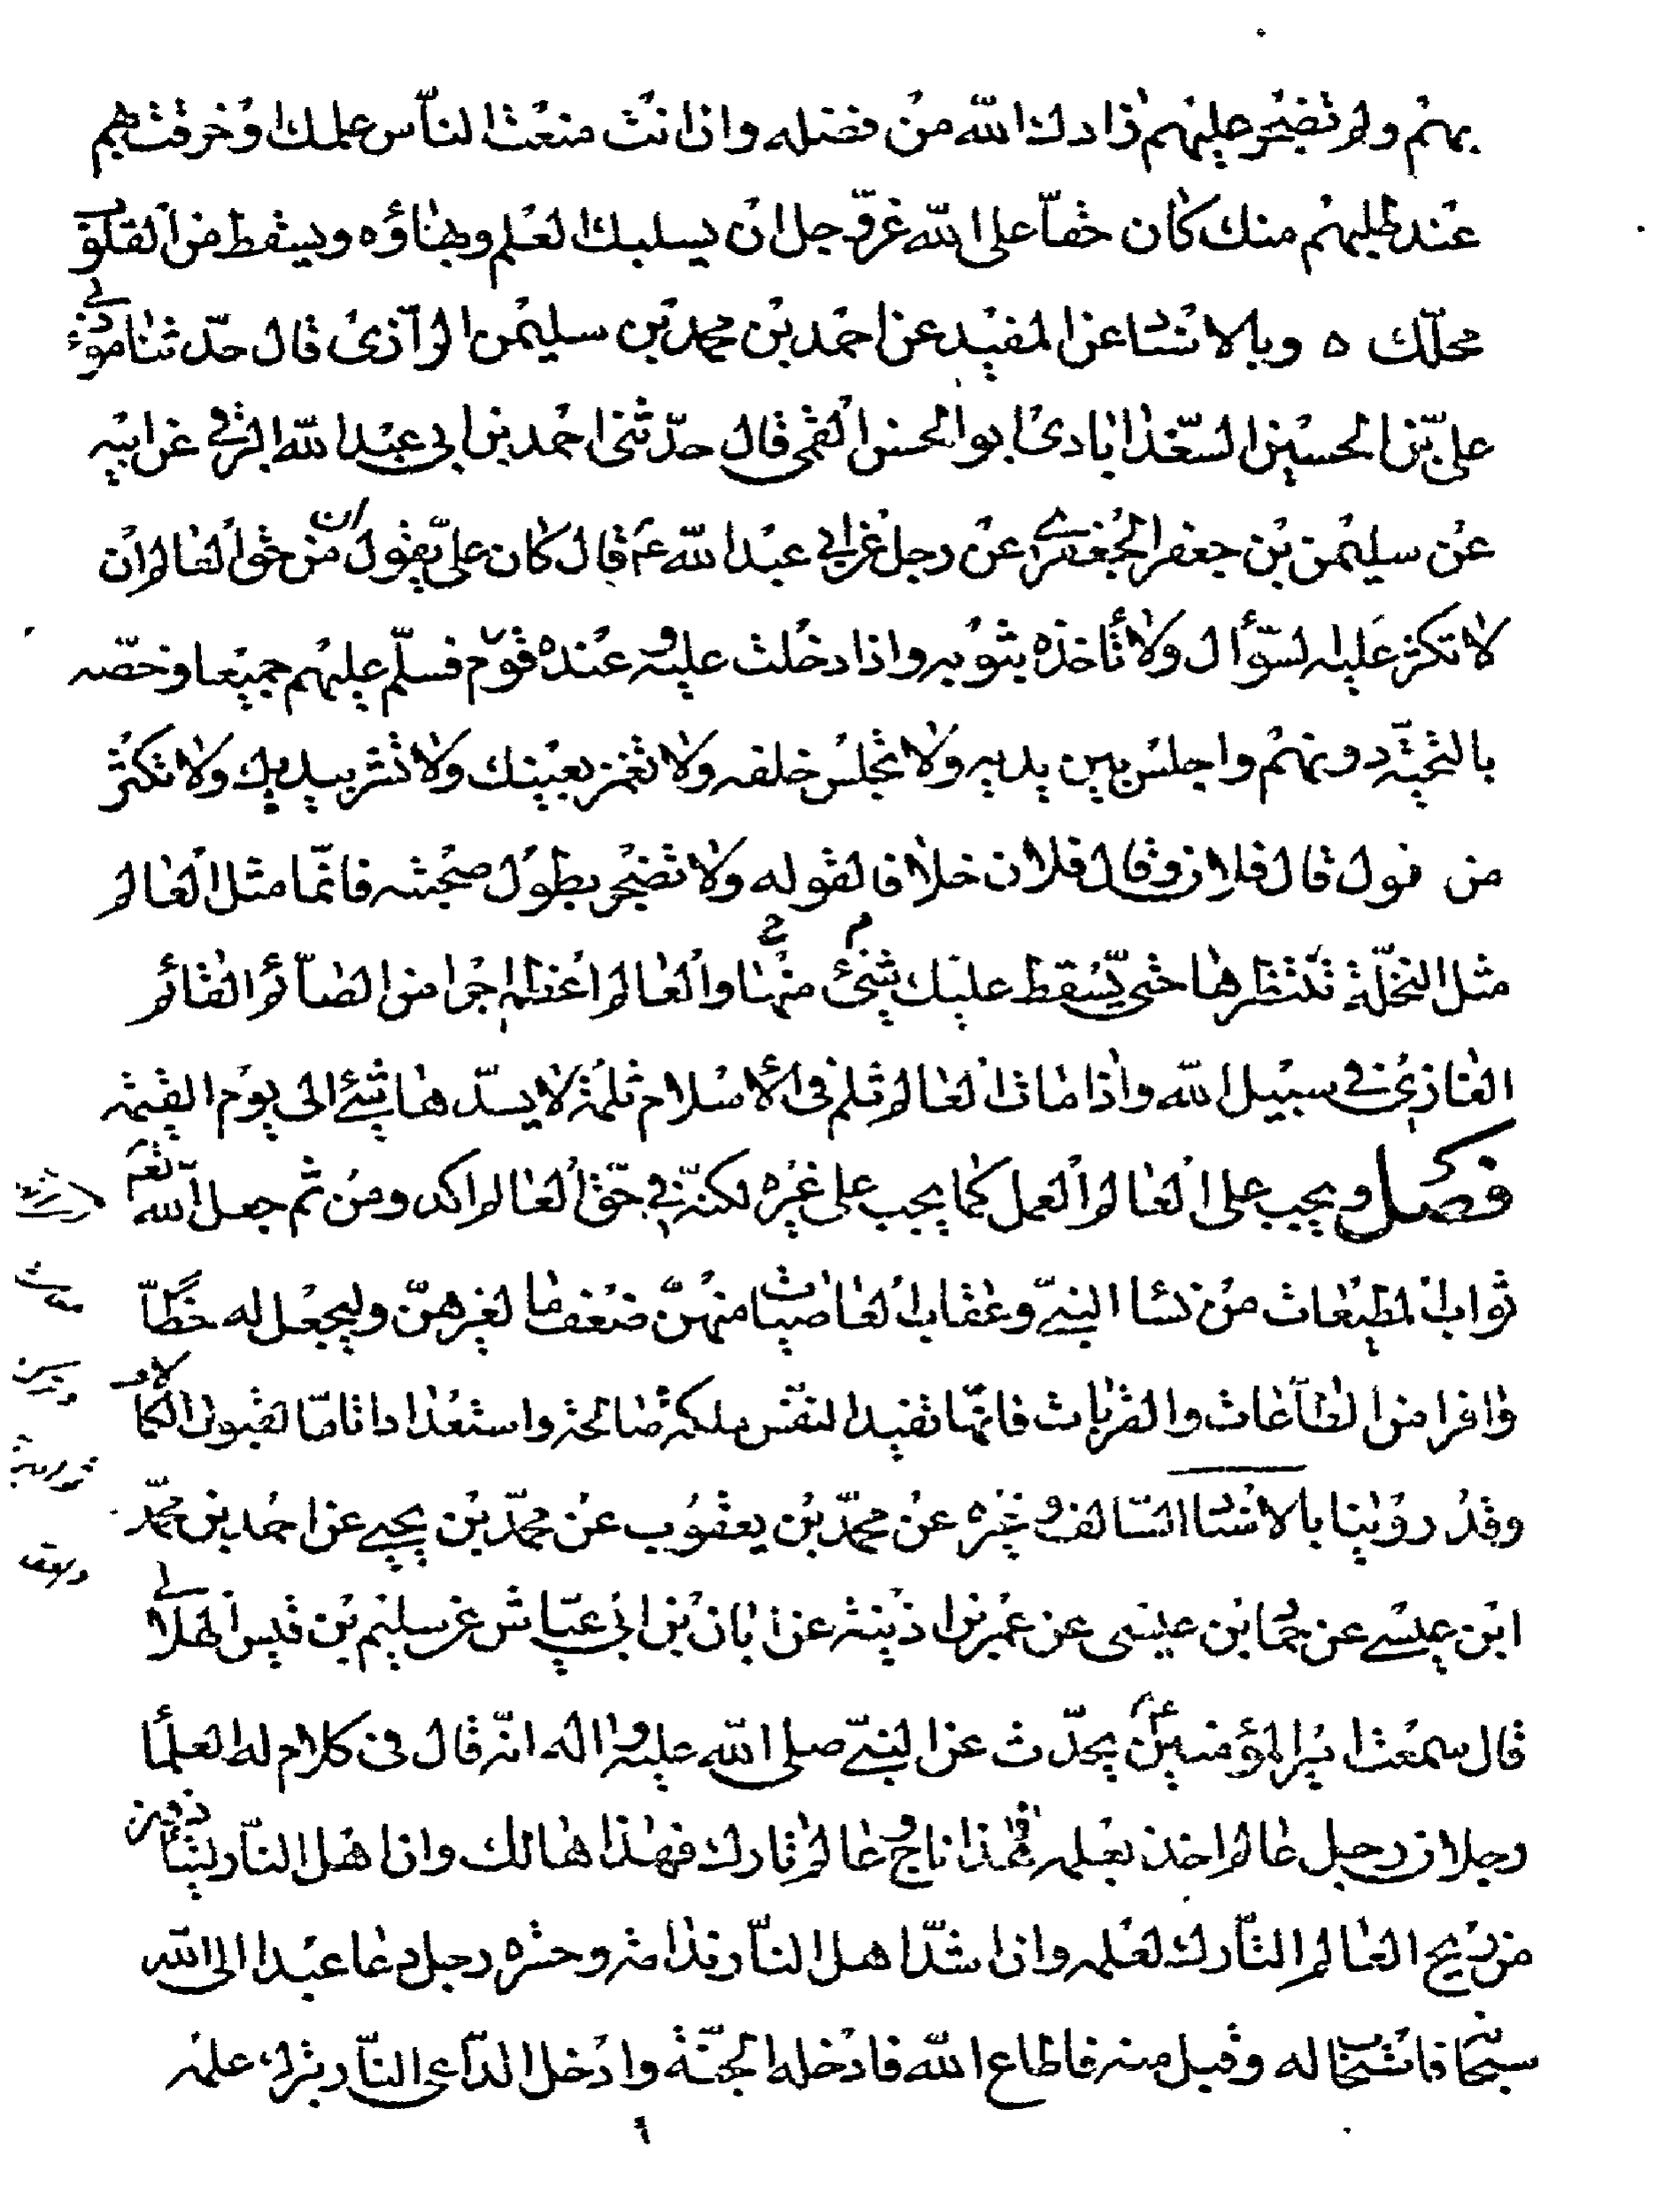 بهم ولم تضجر عليهم زادك الله من فضله وان انت منعت الناس علمك وخرقت بهم
عند طلبهم منك كان حقا على الله عزوجل ان يسلبك العلم وبهاؤه ويسقط من القلوب
محلك ه وبالاسناد عن المفيد عن احمد بن محمد بن سليمن الرازى قال حدثنا مؤدبى
على بن الحسين السعدابادى ابو الحسن القمى قال حدثنى احمد بن ابى عبد الله البرقى عن ابيه
عن سليمن بن جعفر الجعفرى عن رجل عن ابى عبد الله ع قال كان على يقول ان من حق العالم ان
لا تكثر عليه السؤال ولا تأخذه بثوبه واذا دخلت عليه وعنده قوم فسلم عليهم جميعا وخصه
بالتحية دونهم واجلس بين يديه ولا تجلس خلفه ولا تغمز بعينك ولا تشر بيديك ولا تكثر
من قول قال فلان وقال فلان خلافا لقوله ولا تضجر بطول صحبته فانما مثل العالم
مثل النخلة تنتظرها حتى يسقط عليك منها شئ والعالم اعظم اجرا من الصائم القائم
الغازى فى سبيل الله واذا مات العالم ثلم فى الاسلام ثلمة لا يسدها شئ الى يوم القيمة
فصل ويجب على العالم العمل كما يجب على غيره لكنه فى حق العالم اكد ومن ثم جعل الله تعالى
ثواب المطيعات من نساء النبى وعقاب العاصيات منهن ضعف ما لغيرهن وليجعل له حظا
وافرا من الطاعات والقربات فانها تفيد النفس ملكة صالحة واستعدادا تاما لقبول الكمالات
وقد روينا بالاسناد السالف وغيره عن محمد بن يعقوب عن محمد بن يحيى عن احمد بن محمد
ابن عيسى عن حماد بن عيسى عن عمر بن اذينة عن ابان بن ابى عياش عن سليم بن قيس الهلالى
قال سمعت امير المؤمنين ع يحدث عن النبى صلى الله عليه واله انه قال فى كلام له العلماء
رجلان رجل عالم اخذ بعلمه فهذا ناج وعالم تارك فهذا هالك وان اهل النار ليتأذون
من ريح العالم التارك لعلمه وان اشد اهل النار ندامة وحسرة رجل دعا عبدا الى الله
سبحانه فاستجاب له وقبل منه فاطاع الله فادخله الجنة وادخل الداعى النار بتركه علمه